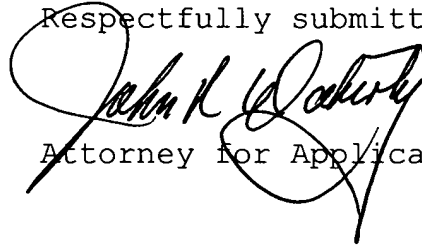 Respectfully submitt
John R Doherty
Attorney for Applica